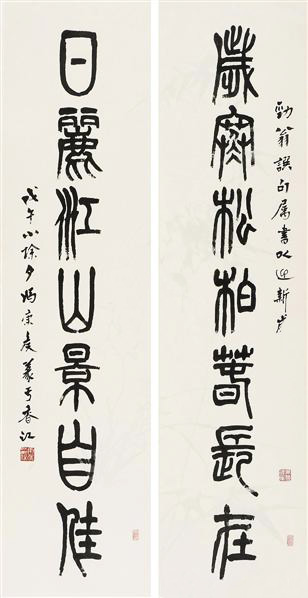 勁翁譔句属書以迎新歲
歲寒松柏春長在
日麗江山景自佳
戊午小除夕馮康矦篆于香江